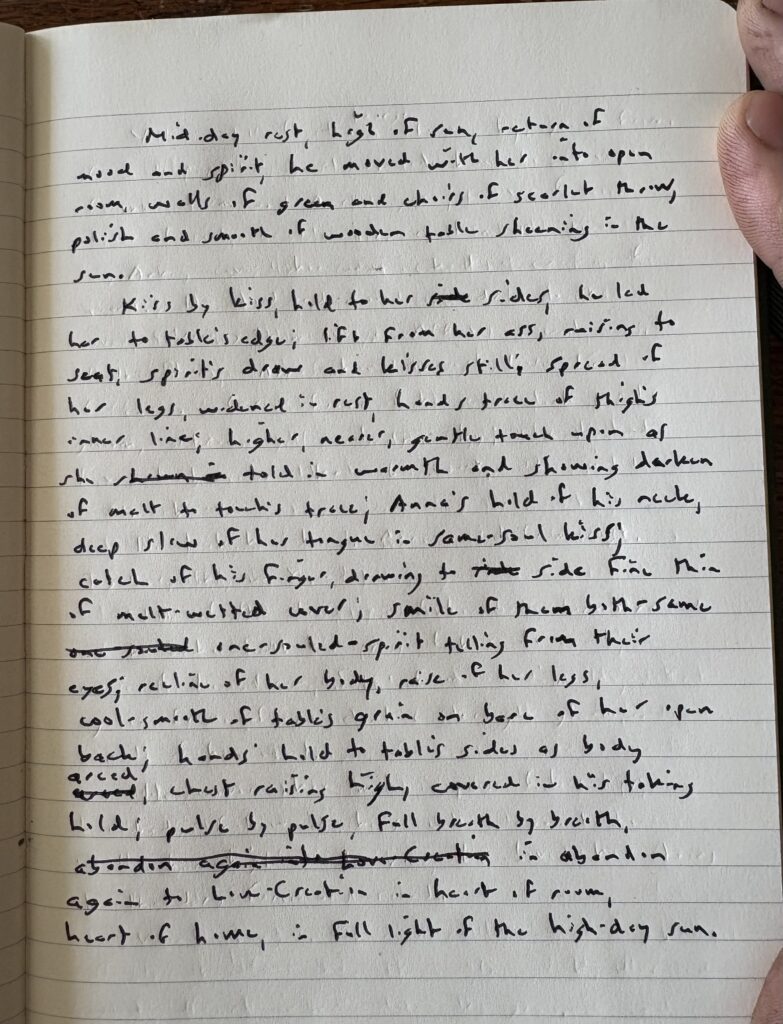 Mid-day rest, high of sun, return of
mood and spirit, he moved with her into open
room, walls of green and chairs of scarlet throw,
polish and smooth of wooden table sheening in the
sun.
Kiss by kiss, hold to her side sides, he led
her to table's edge; lift from her ass, raising to
seat, spirit's draw and kisses still; spread of
her legs, widened in rest, hands trace of thigh's
inner line; higher, nearer, gentle touch upon as
she told in warmth and showing darken
of melt to touch's trace; Anna's hold of his neck,
deep slow of her tongue in same-soul kiss;
catch of his finger, drawing to side fine thin
of melt-wetted cover; smile of them both-same
one souled one-souled-spirit telling from their
eyes; recline of her body, raise of her legs,
cool-smooth of table's grain on bare of her open
back; hands' hold to table's sides as body
arced, chest raising high, covered in his taking
hold; pulse by pulse, full breath by breath,
abandon again into Love-Creation in abandon
again to Love-Creation in heart of room,
heart of home, in full light of the high-day sun.